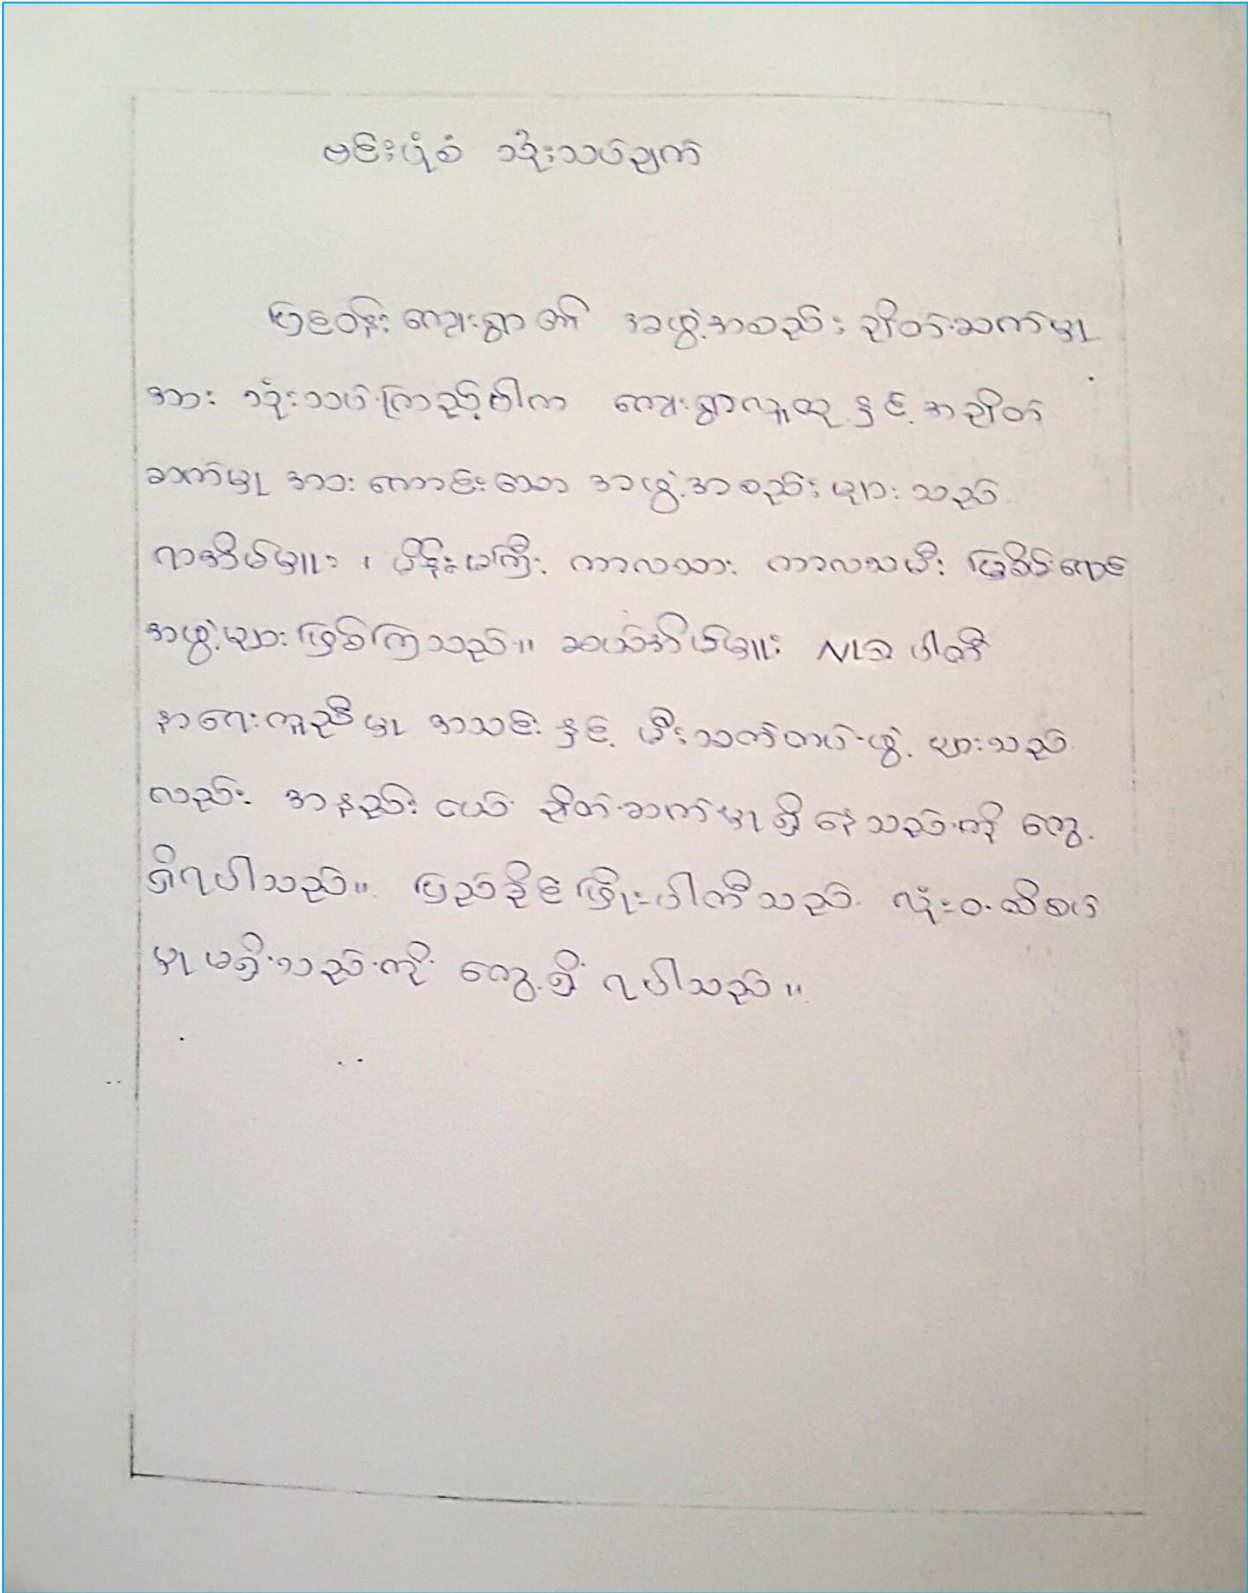 ဗင်းပုံစံ သုံးသပ်ချက်
ပြင်ဝန်း ကျေးရွာ ၏ အဖွဲ့အစည်း ချိတ်ဆက်မှု
အား သုံးသပ်ကြည့်ပါက ကျေးရွာလူထု နှင့် အချိတ်
ဆက်မှု အား ကောင်းသော အဖွဲ့အစည်း များ သည်
ရာအိမ်မှူး ၊ မိန်းမကြီး ကာလသား ကာလသမီး
အဖွဲ့များ ဖြစ်ကြသည်။ ဆယ်အိမ်မှူး NLD ပါတီ
နာရေးကူညီမှု အသင်း နှင့် မီးသတ်တပ်ဖွဲ့ များသည်
လည်း အနည်း ငယ် ချိတ်ဆက်မှု ရှိနေသည်ကို တွေ့
ရှိရပါသည်။ ပြည်ခိုင်ဖြိုးပါတီသည် လုံးဝ ထိစပ်
မှု မရှိသည်ကို တွေ့ရှိ ရပါသည်။